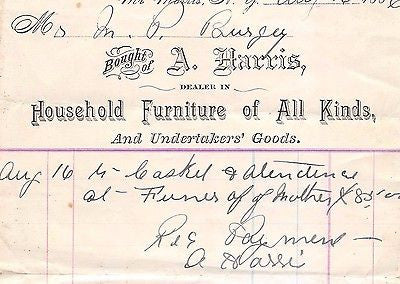 Mt Morris, N. Y. Aug
Mr M. P. Burgey
Bought of A. Harris,
DEALER IN
Household Furniture of All Kinds,
And Undertakers' Goods.
Aug 16 Casket & atendence
at Funeral of Mother $85.00
Rec Payment
A Harris